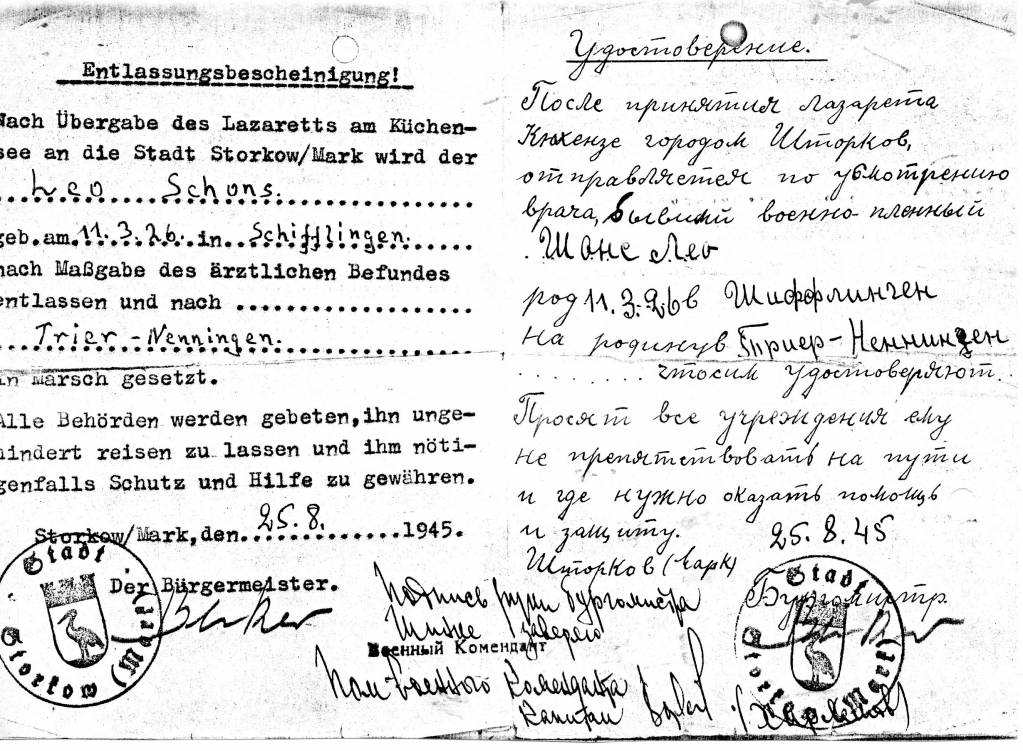 Entlassungsbescheinigung!
Nach Übergabe des Lazaretts am Küchen-
see an die Stadt Storkow/Mark wird der
Leo Schons.
geb.am 11.3.26. in Schifflingen.
nach Maßgabe des ärztlichen Befundes
entlassen und nach
Trier-Nenningen.
in Marsch gesetzt.
Alle Behörden werden gebeten,ihn unge-
hindert reisen zu lassen und ihm nöti-
genfalls Schutz und Hilfe zu gewähren.
Storkow/Mark,den 25.8. 1945.
Der Bürgermeister.
Stadt Storkow (Mark)
Удостоверение.
После принятия лазарета
Кюхензе городом Шторков,
отправляется по усмотрению
врача, бывший военно-пленный
Шонс Лео
род 11.3.26 в Шиффлинген
на родину в Триер-Неннинген
что сим удостоверяют.
Просят все учреждения ему
не препятствовать на пути
и где нужно оказать помощь
и защиту. 25.8.45
Шторков (Марк)
Бургомистр.
Stadt Storkow (Mark)
Подпись руки бургомистра
заверено
Военный Комендант
Пом Военного Коменданта
Капитан